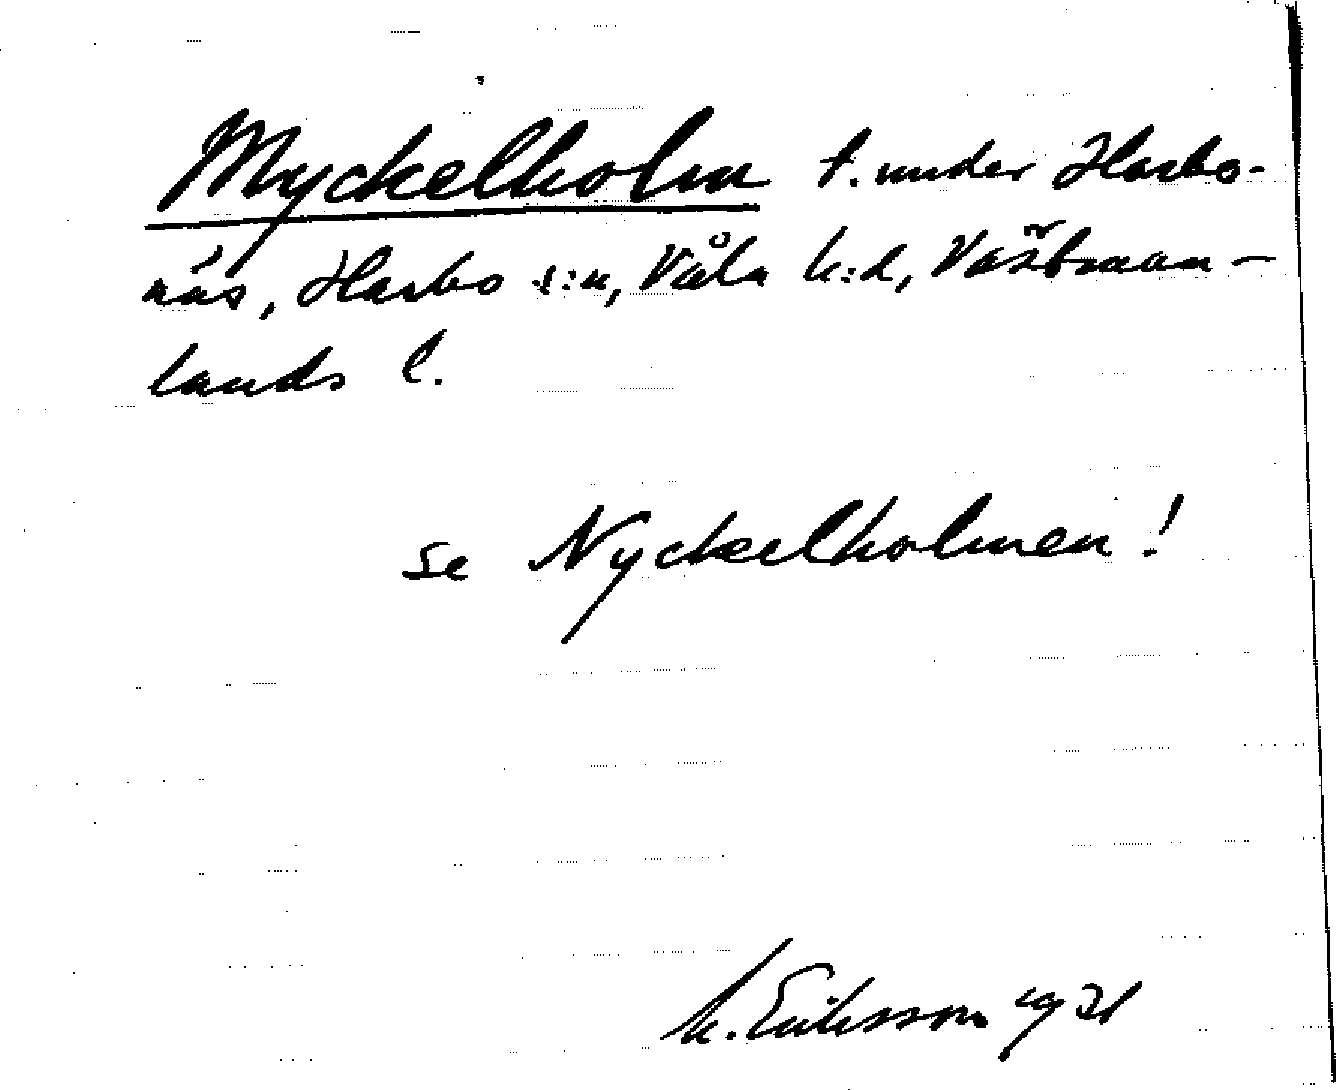 Myckelholm t. under Harbo-
näs, Harbo s:n, Våla h:d, Västman-
lands l.
se Nyckelholmen!
M. Eriksson 1931